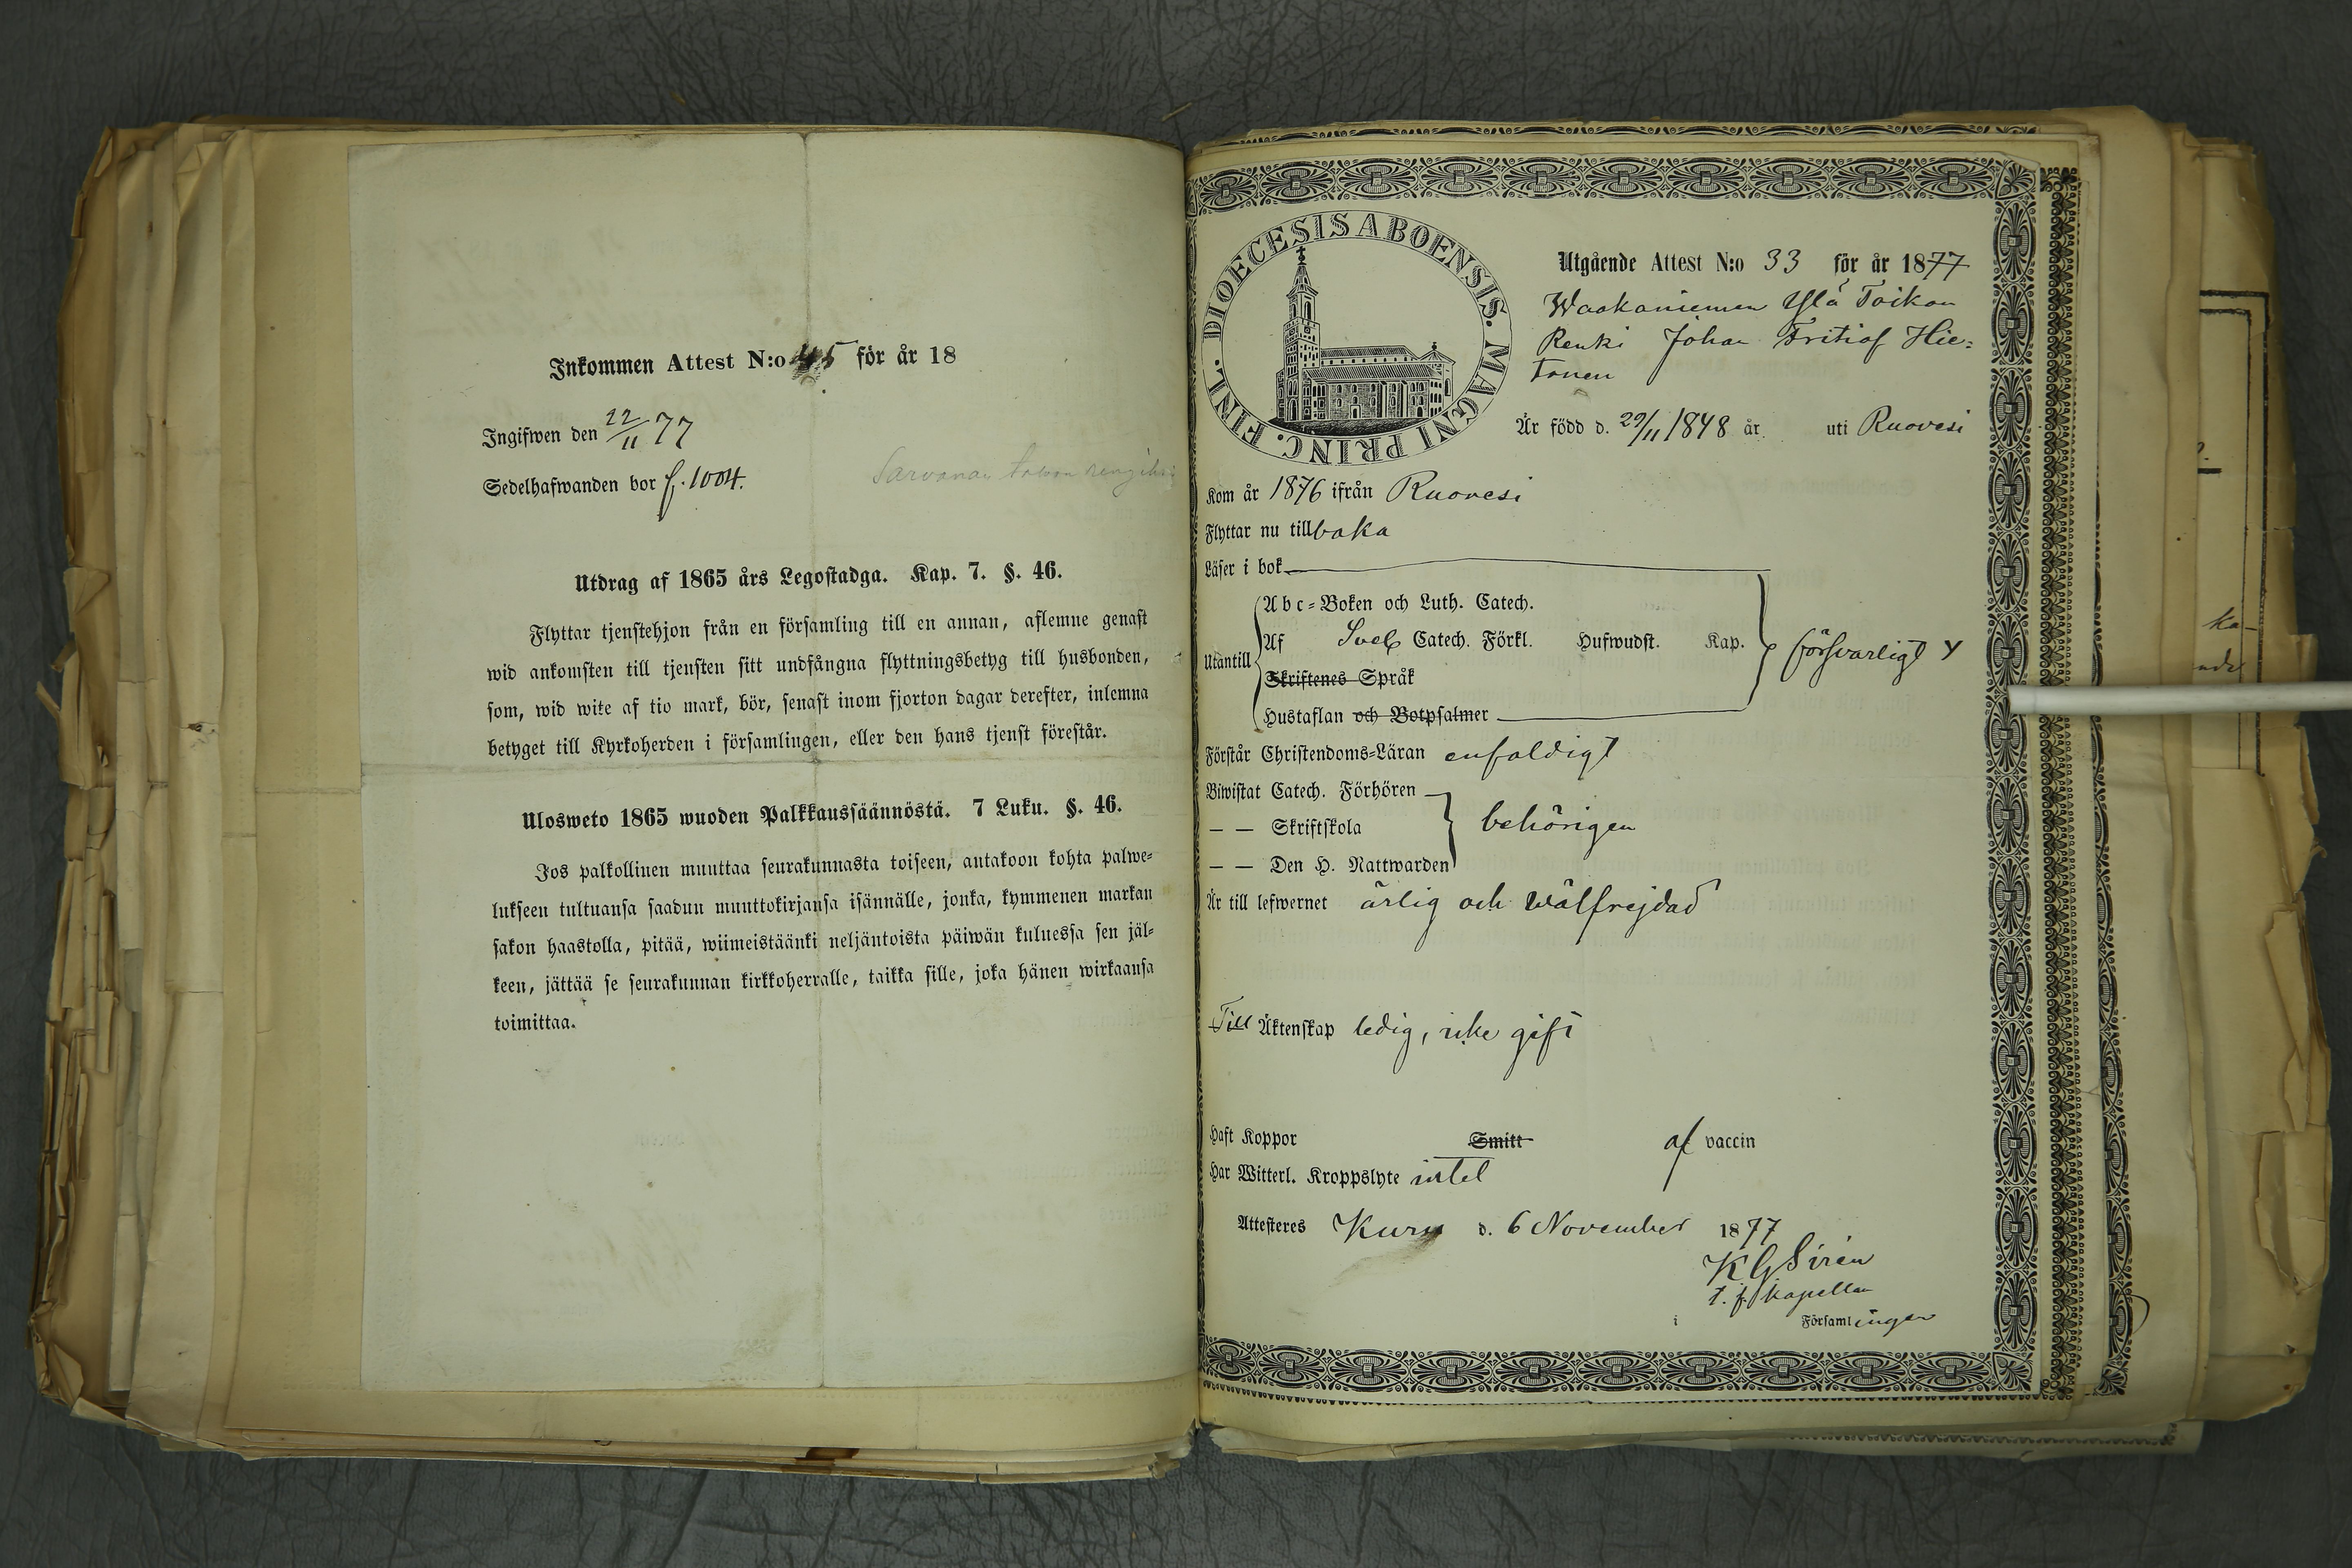 Inkommen Attest N:o 45 för år 18
Ingifwen den 22/11 77
Sedelhafwanden bor f. 1004.
Utdrag af 1865 års Legostadga. Kap. 7. §. 46.
Flyttar tjenstehjon från en församling till en annan, aflemne genast
wid ankomsten till tjensten sitt undfångna flyttningsbetyg till husbonden,
som, wid wite af tio mark, bör, senast inom fjorton dagar derefter, inlemna
betyget till Kyrkoherden i församlingen, eller den hans tjenst förestår.
Ulosweto 1865 wuoden Palkkaussäännöstä. 7 Luku. §. 46.
Jos palkollinen muuttaa seurakunnasta toiseen, antakoon kohta palwe-
lukseen tultuansa saadun muuttokirjansa isännälle, jonka, kymmenen markan
sakon haastolla, pitää, wiimeistäänki neljäntoista päiwän kuluessa sen jäl-
keen, jättää se seurakunnan kirkkoherralle, taikka sille, joka hänen wirkaansa
toimittaa.
DIOECESIS ABOENSIS. MAGNI PRINC. FINL.
Utgående Attest N:o 33 för år 1877
Waakaniemen Ylä Toikon
Renki Johan Fritiof Hie-
tanen
Är född d. 29/11 1848 år uti Ruovesi
Kom år 1876 ifrån Ruovesi
Flyttar nu tillbaka
Läser i bok
Abc-Boken och Luth. Catech.
Utantill Af Sveb Catech. Förkl. Hufwudst. Kap. försvarligt
Skriftenes Språk
Hustaflan och Botpsalmer
Förstår Christendoms-Läran enfaldigt
Biwistat Catech. Förhören
— — Skriftskola behörigen
— — Den H. Nattwarden
Är till lefwernet ärlig och wälfrejdad
Till Äktenskap ledig, icke gift
Haft Koppor Smitt af vaccin
Har Witterl. Kroppslyte intet
Attesteras Kuru d. 6 November 1877
K G Sirén
t. f. kapellan
i Församlingen